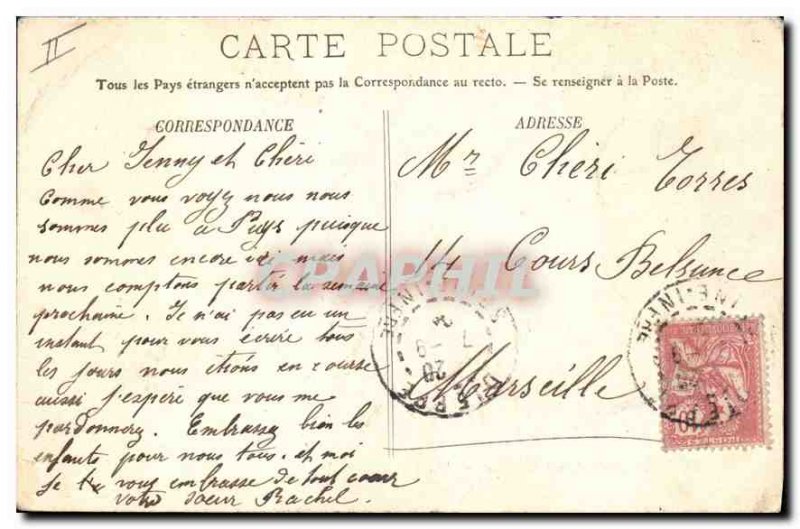 II
CARTE POSTALE
Tous les Pays étrangers n'acceptent pas la Correspondance au recto. — Se renseigner à la Poste.
CORRESPONDANCE
Cher Jenny et Chéri
Comme vous voyez nous nous
sommes plu a Puys puisque
nous sommes encore ici mais
nous comptons partir la semaine
prochaine. Je n'ai pas eu un
instant pour vous écrire tous
les jours nous étions en course
aussi j'espére que vous me
pardonnerz. Embrassez bien les
enfants pour nous tous. et moi
je vous embrasse de tout coeur
votre soeur Rachel.
ADRESSE
Mr Chéri Torres
14 Cours Belsunce
Marseille
CPAPHIL
INFRE
20
7 - 9
INE-INFRE